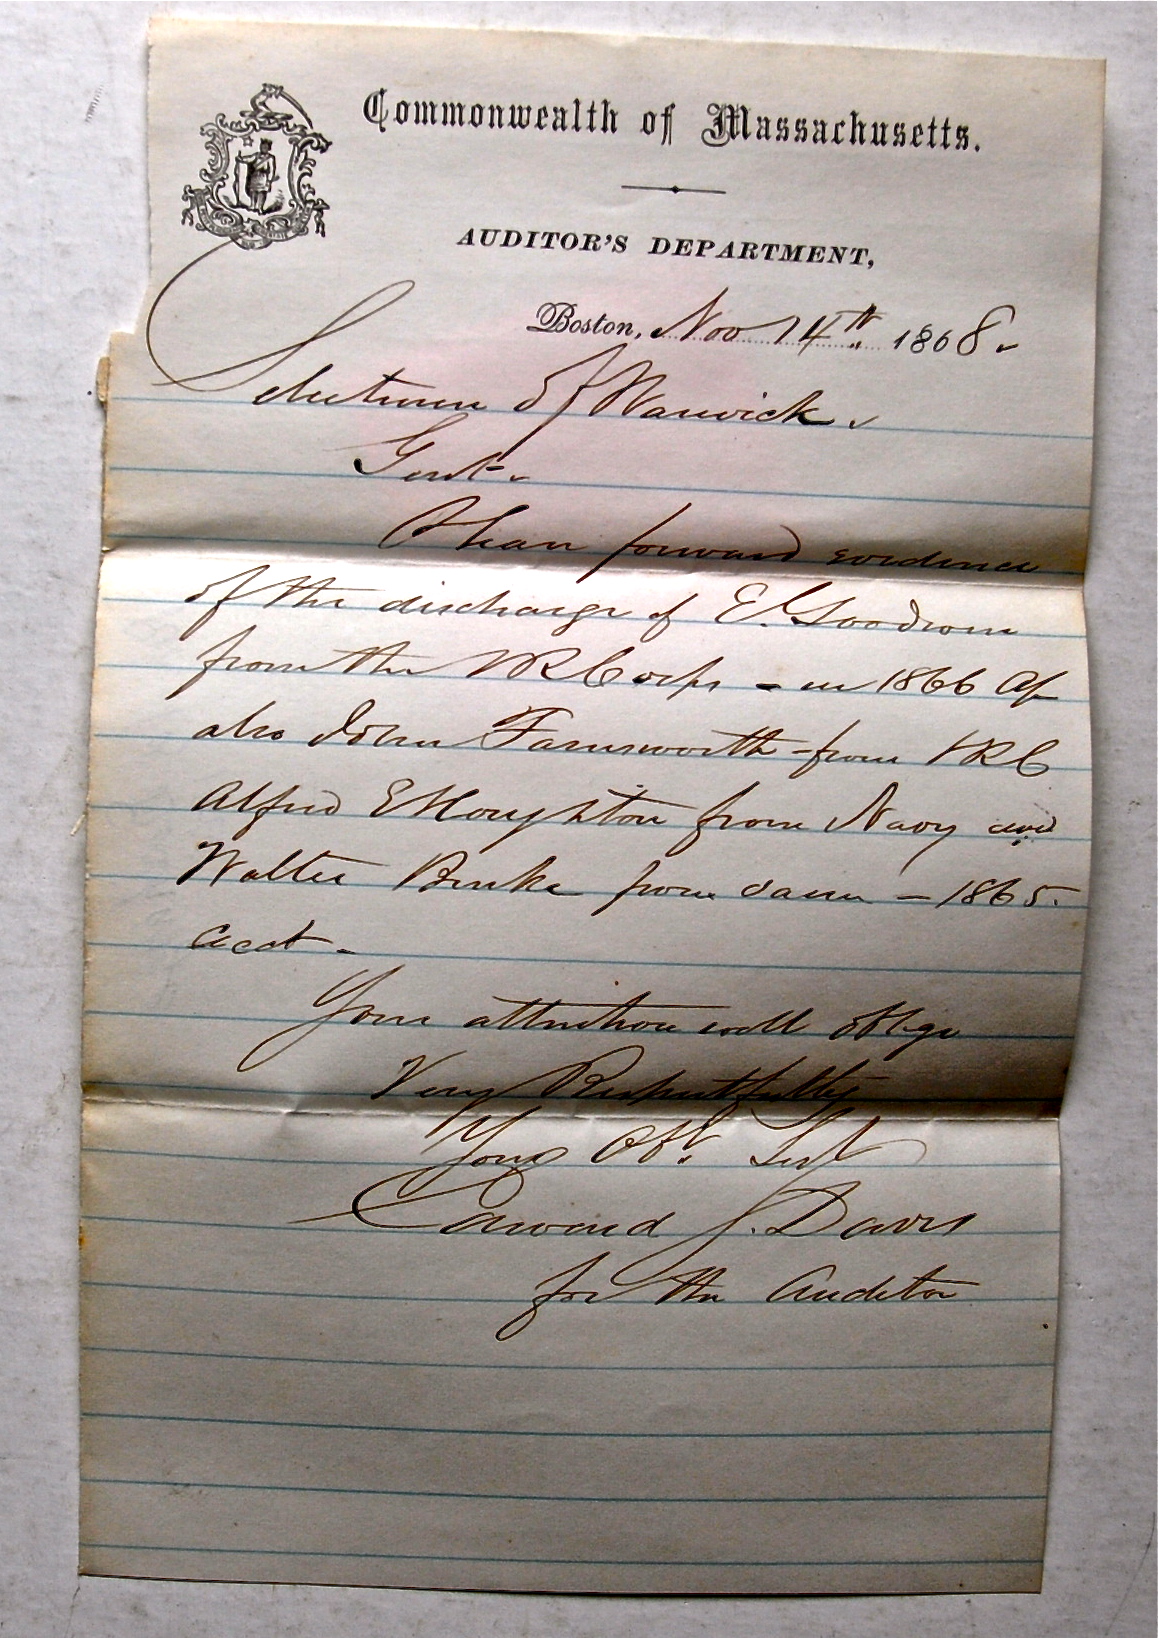 Commonwealth of Massachusetts.
AUDITOR'S DEPARTMENT,
Boston, Nov 14th 1868.
Selectmen of Warwick.
Gent.
Please forward evidence
of the discharge of E. Goodrow
from the VR Corps - in 1866
also John Farnsworth - from VRC
Alfred E Houghton from Navy and
Walter Burke from same - 1865.
acct -
Your attention will oblige
Very Respectfully
Your Obt. Svt
Edward J. Davis
for the Auditor